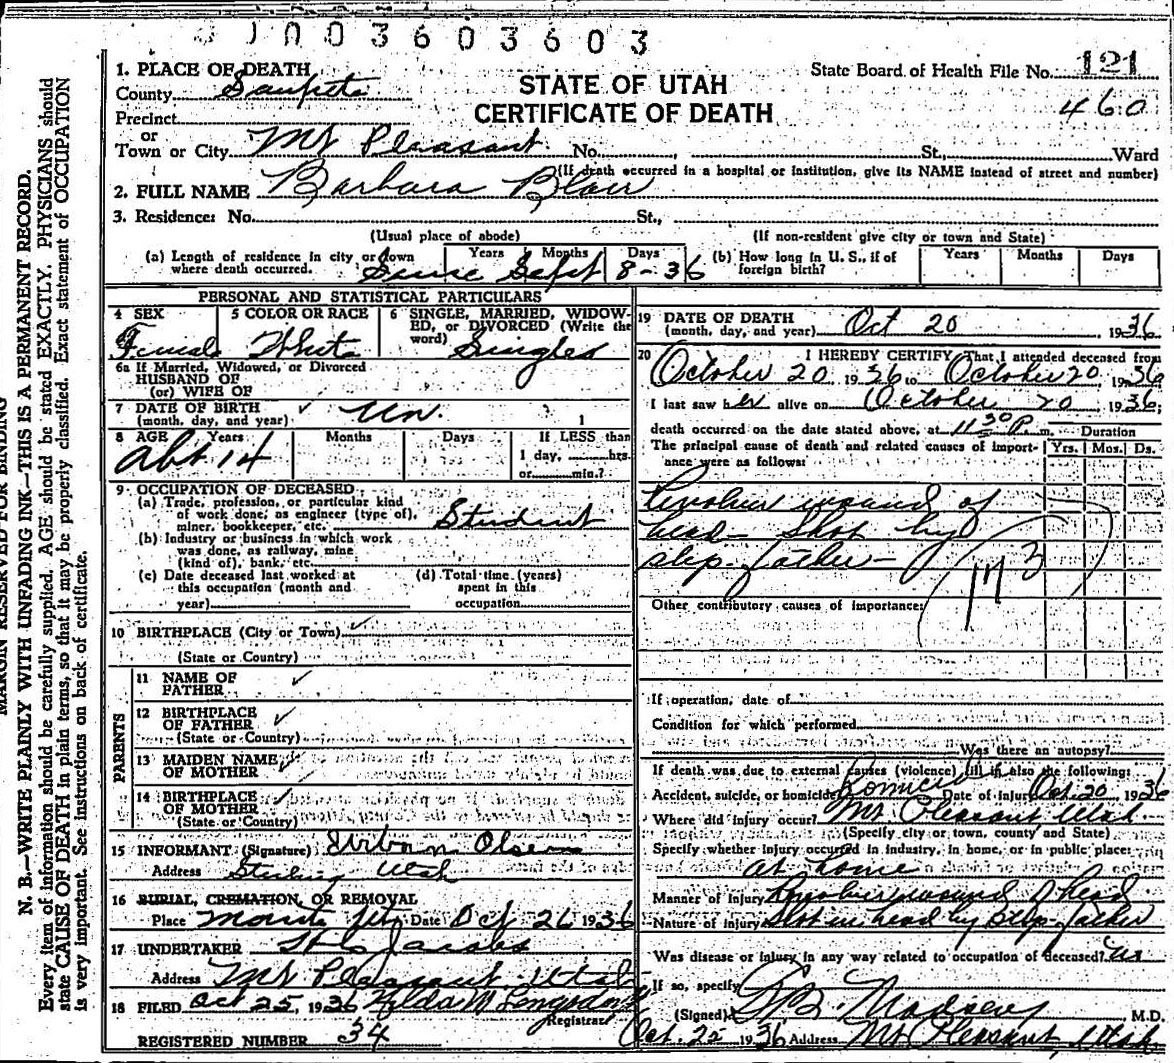 J N 0 0 3 6 0 3 6 0 3
1. PLACE OF DEATH
County Sanpete
Precinct
or
Town or City Mt Pleasant No. , St., Ward
STATE OF UTAH
CERTIFICATE OF DEATH
State Board of Health File No. 121
460
(If death occurred in a hospital or institution, give its NAME instead of street and number)
2. FULL NAME Barbara Blair
3. Residence: No. St.,
(Usual place of abode) (If non-resident give city or town and State)
(a) Length of residence in city or town where death occurred. Years Months Days Since Sept 8-36
(b) How long in U. S., if of foreign birth? Years Months Days
PERSONAL AND STATISTICAL PARTICULARS
4 SEX Female
5 COLOR OR RACE White
6 SINGLE, MARRIED, WIDOWED, or DIVORCED (Write the word) Single
6a If Married, Widowed, or Divorced
HUSBAND OF
(or) WIFE OF
7 DATE OF BIRTH
(month, day, and year) Un. 1
8 AGE Years Months Days If LESS than
Abt 14 1 day, hrs.
or min.?
9. OCCUPATION OF DECEASED
(a) Trade, profession, or particular kind
of work done, as engineer (type of),
miner, bookkeeper, etc. Student
(b) Industry or business in which work
was done, as railway, mine
(kind of), bank, etc.
(c) Date deceased last worked at
this occupation (month and
year)
(d) Total time (years)
spent in this
occupation
10 BIRTHPLACE (City or Town)
(State or Country)
PARENTS
11 NAME OF
FATHER
12 BIRTHPLACE
OF FATHER
(State or Country)
13 MAIDEN NAME
OF MOTHER
14 BIRTHPLACE
OF MOTHER
(State or Country)
15 INFORMANT (Signature) Olsen
Address Sterling Utah
16 BURIAL, CREMATION, OR REMOVAL
Place Date Oct 26 1936
17 UNDERTAKER Jacobs
Address Mt Pleasant Utah
18 FILED Oct 25, 1936
Registrar
REGISTERED NUMBER 34
19 DATE OF DEATH
(month, day, and year) Oct 20 1936
20 I HEREBY CERTIFY That I attended deceased from
October 20 1936 to October 20, 1936
I last saw her alive on October 20 1936;
death occurred on the date stated above, at 11 30 P. m. Duration
The principal cause of death and related causes of importance were as follows: Yrs. Mos. Ds.
Revolver wound of
head - Shot by
step father -
173
Other contributory causes of importance:
If operation, date of
Condition for which performed
Was there an autopsy?
If death was due to external causes (violence) fill in also the following:
Accident, suicide, or homicide Date of injury Oct. 20 1936
Where did injury occur? Mt Pleasant Utah
(Specify city or town, county and State)
Specify whether injury occurred in industry, in home, or in public place:
at home
Manner of Injury Revolver wound of head
Nature of injury Shot in head by step father
Was disease or injury in any way related to occupation of deceased?
If so, specify
(Signed) M.D.
Oct. 25 1936 Address Mt Pleasant, Utah
MARGIN RESERVED FOR BINDING
N. B.—WRITE PLAINLY WITH UNFADING INK—THIS IS A PERMANENT RECORD.
Every item of information should be carefully supplied. AGE should be stated EXACTLY. PHYSICIANS should
state CAUSE OF DEATH in plain terms, so that it may be properly classified. Exact statement of OCCUPATION
is very important. See instructions on back of certificate.